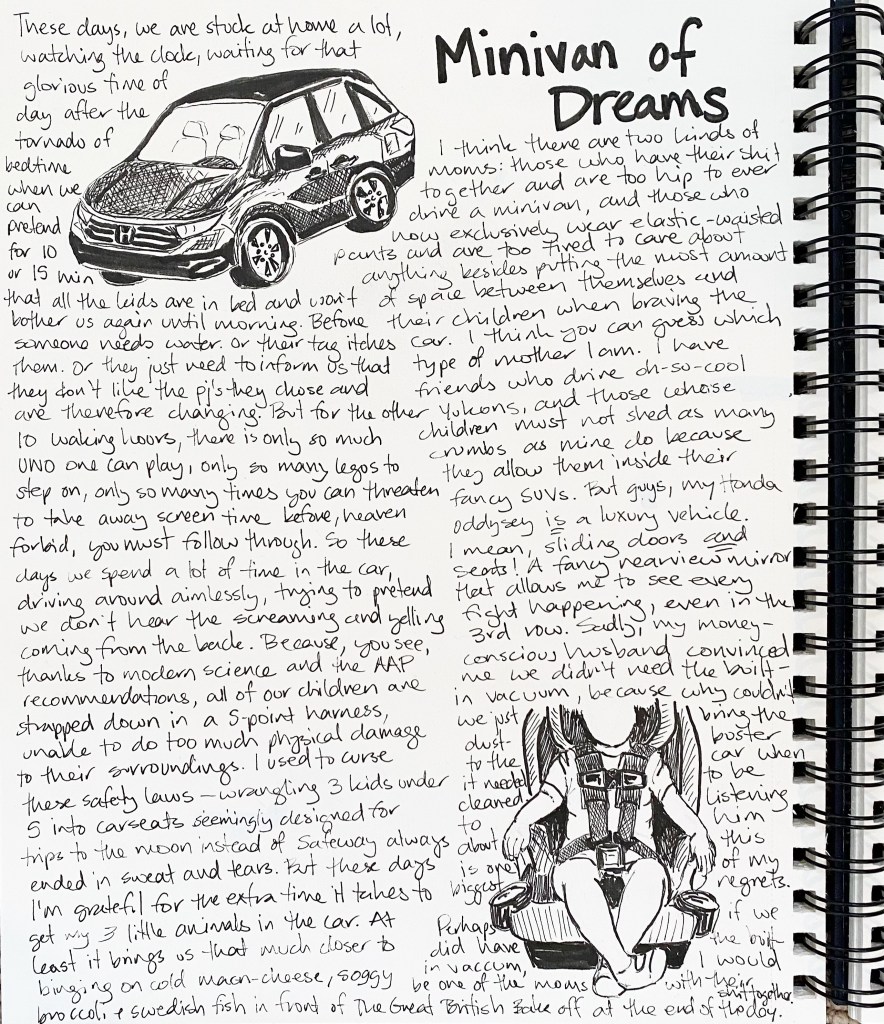 Minivan of
Dreams
These days, we are stuck at home a lot,
watching the clock, waiting for that
glorious time of
day after the
tornado of
bedtime
when we
can
pretend
for 10
or 15 min
that all the kids are in bed and won't
bother us again until morning. Before
someone needs water. Or their tag itches
them. Or they just need to inform us that
they don't like the pj's they chose and
are therefore changing. But for the other
10 waking hours, there is only so much
UNO one can play, only so many legos to
step on, only so many times you can threaten
to take away screen time before, heaven
forbid, you must follow through. So these
days we spend a lot of time in the car,
driving around aimlessly, trying to pretend
we don't hear the screaming and yelling
coming from the back. Because, you see,
thanks to modern science and the AAP
recommendations, all of our children are
strapped down in a 5-point harness,
unable to do too much physical damage
to their surroundings. I used to curse
these safety laws - wrangling 3 kids under
5 into carseats seemingly designed for
trips to the moon instead of Safeway always
ended in sweat and tears. But these days
I'm grateful for the extra time it takes to
get my 3 little animals in the car. At
least it brings us that much closer to
binging on cold mac-n-cheese, soggy
broccoli + swedish fish in front of The Great British Bake off at the end of the day.
I think there are two kinds of
moms: those who have their shit
together and are too hip to ever
drive a minivan, and those who
now exclusively wear elastic-waisted
pants and are too tired to care about
anything besides putting the most amount
of space between themselves and
their children when braving the
car. I think you can guess which
type of mother I am. I have
friends who drive oh-so-cool
Yukons, and those whose
children must not shed as many
crumbs as mine do because
they allow them inside their
fancy SUVs. But guys, my Honda
Oddysey is a luxury vehicle.
I mean, sliding doors and
seats! A fancy rearview mirror
that allows me to see every
fight happening, even in the
3rd row. Sadly, my money-
conscious husband convinced
me we didn't need the built-
in vacuum, because why couldn't
we just bring the
dust- buster
to the car when
it needed to be
cleaned listening
to him
about this
is one of my
biggest regrets.
Perhaps if we
did have the built-
in vaccum, I would
be one of the moms with their
shit together.